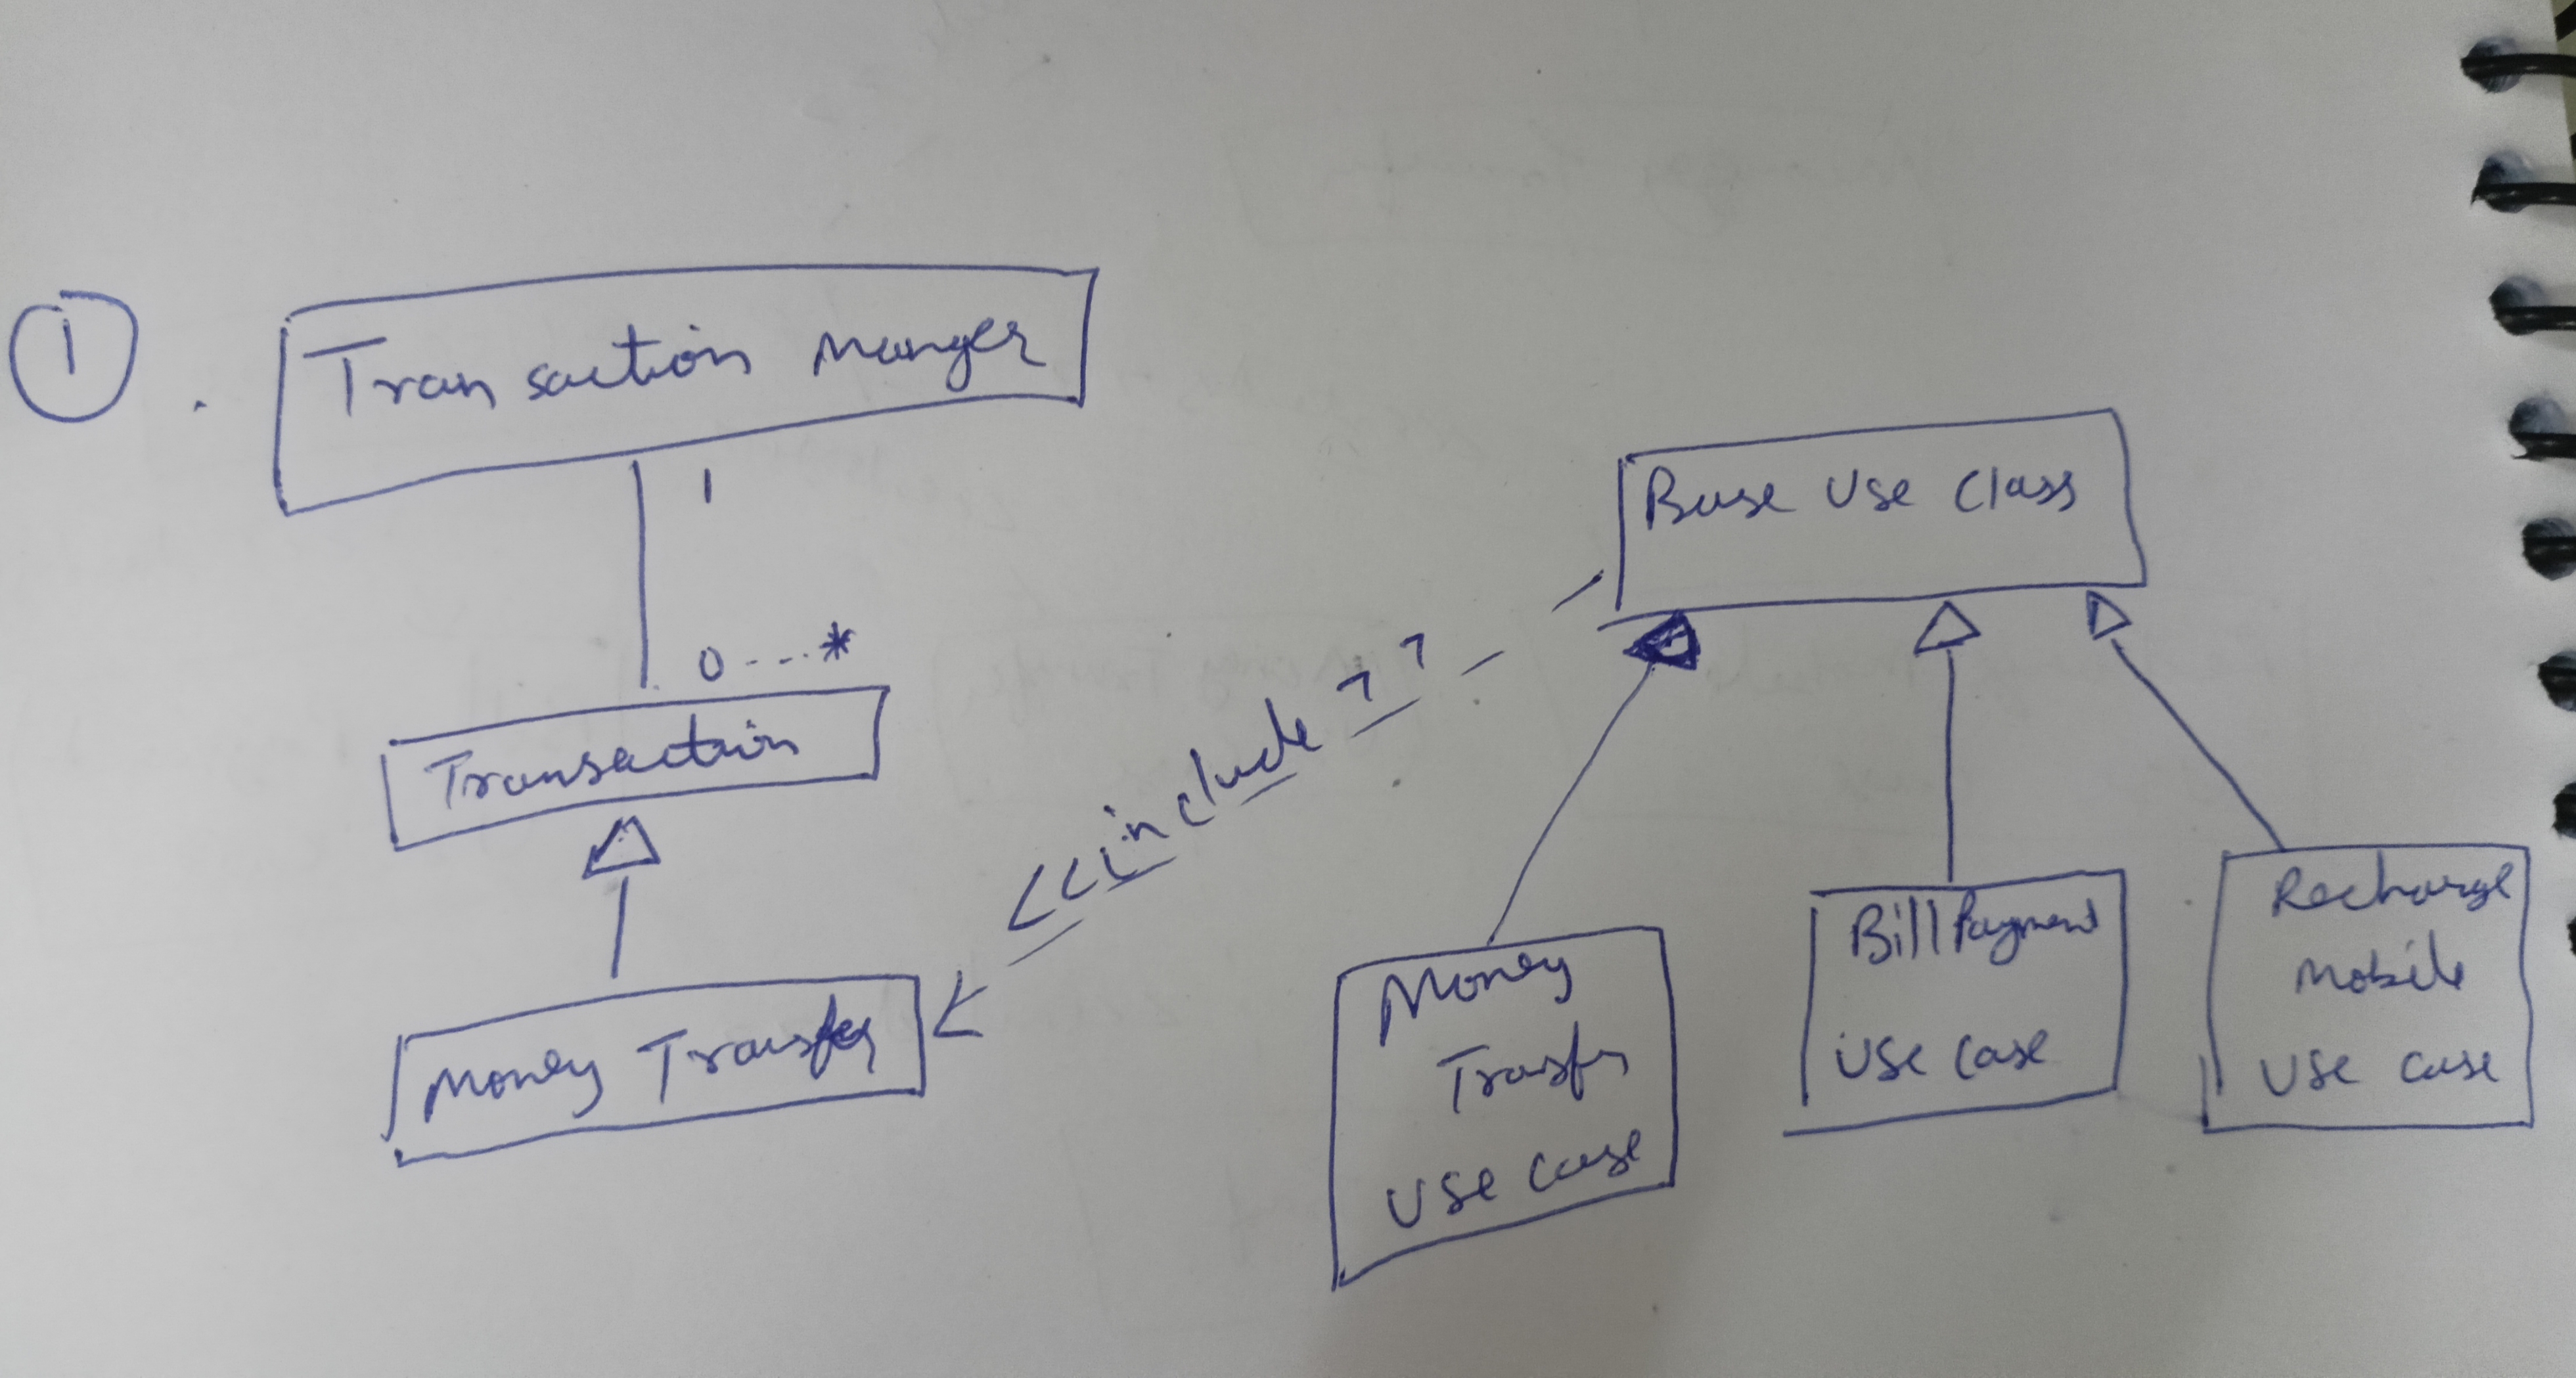 1
Transaction Manger
1
0---*
Transaction
Money Transfer
<<include>>
Base Use Class
Money
Transfer
Use Case
Bill Payment
Use Case
Recharge
Mobile
Use Case